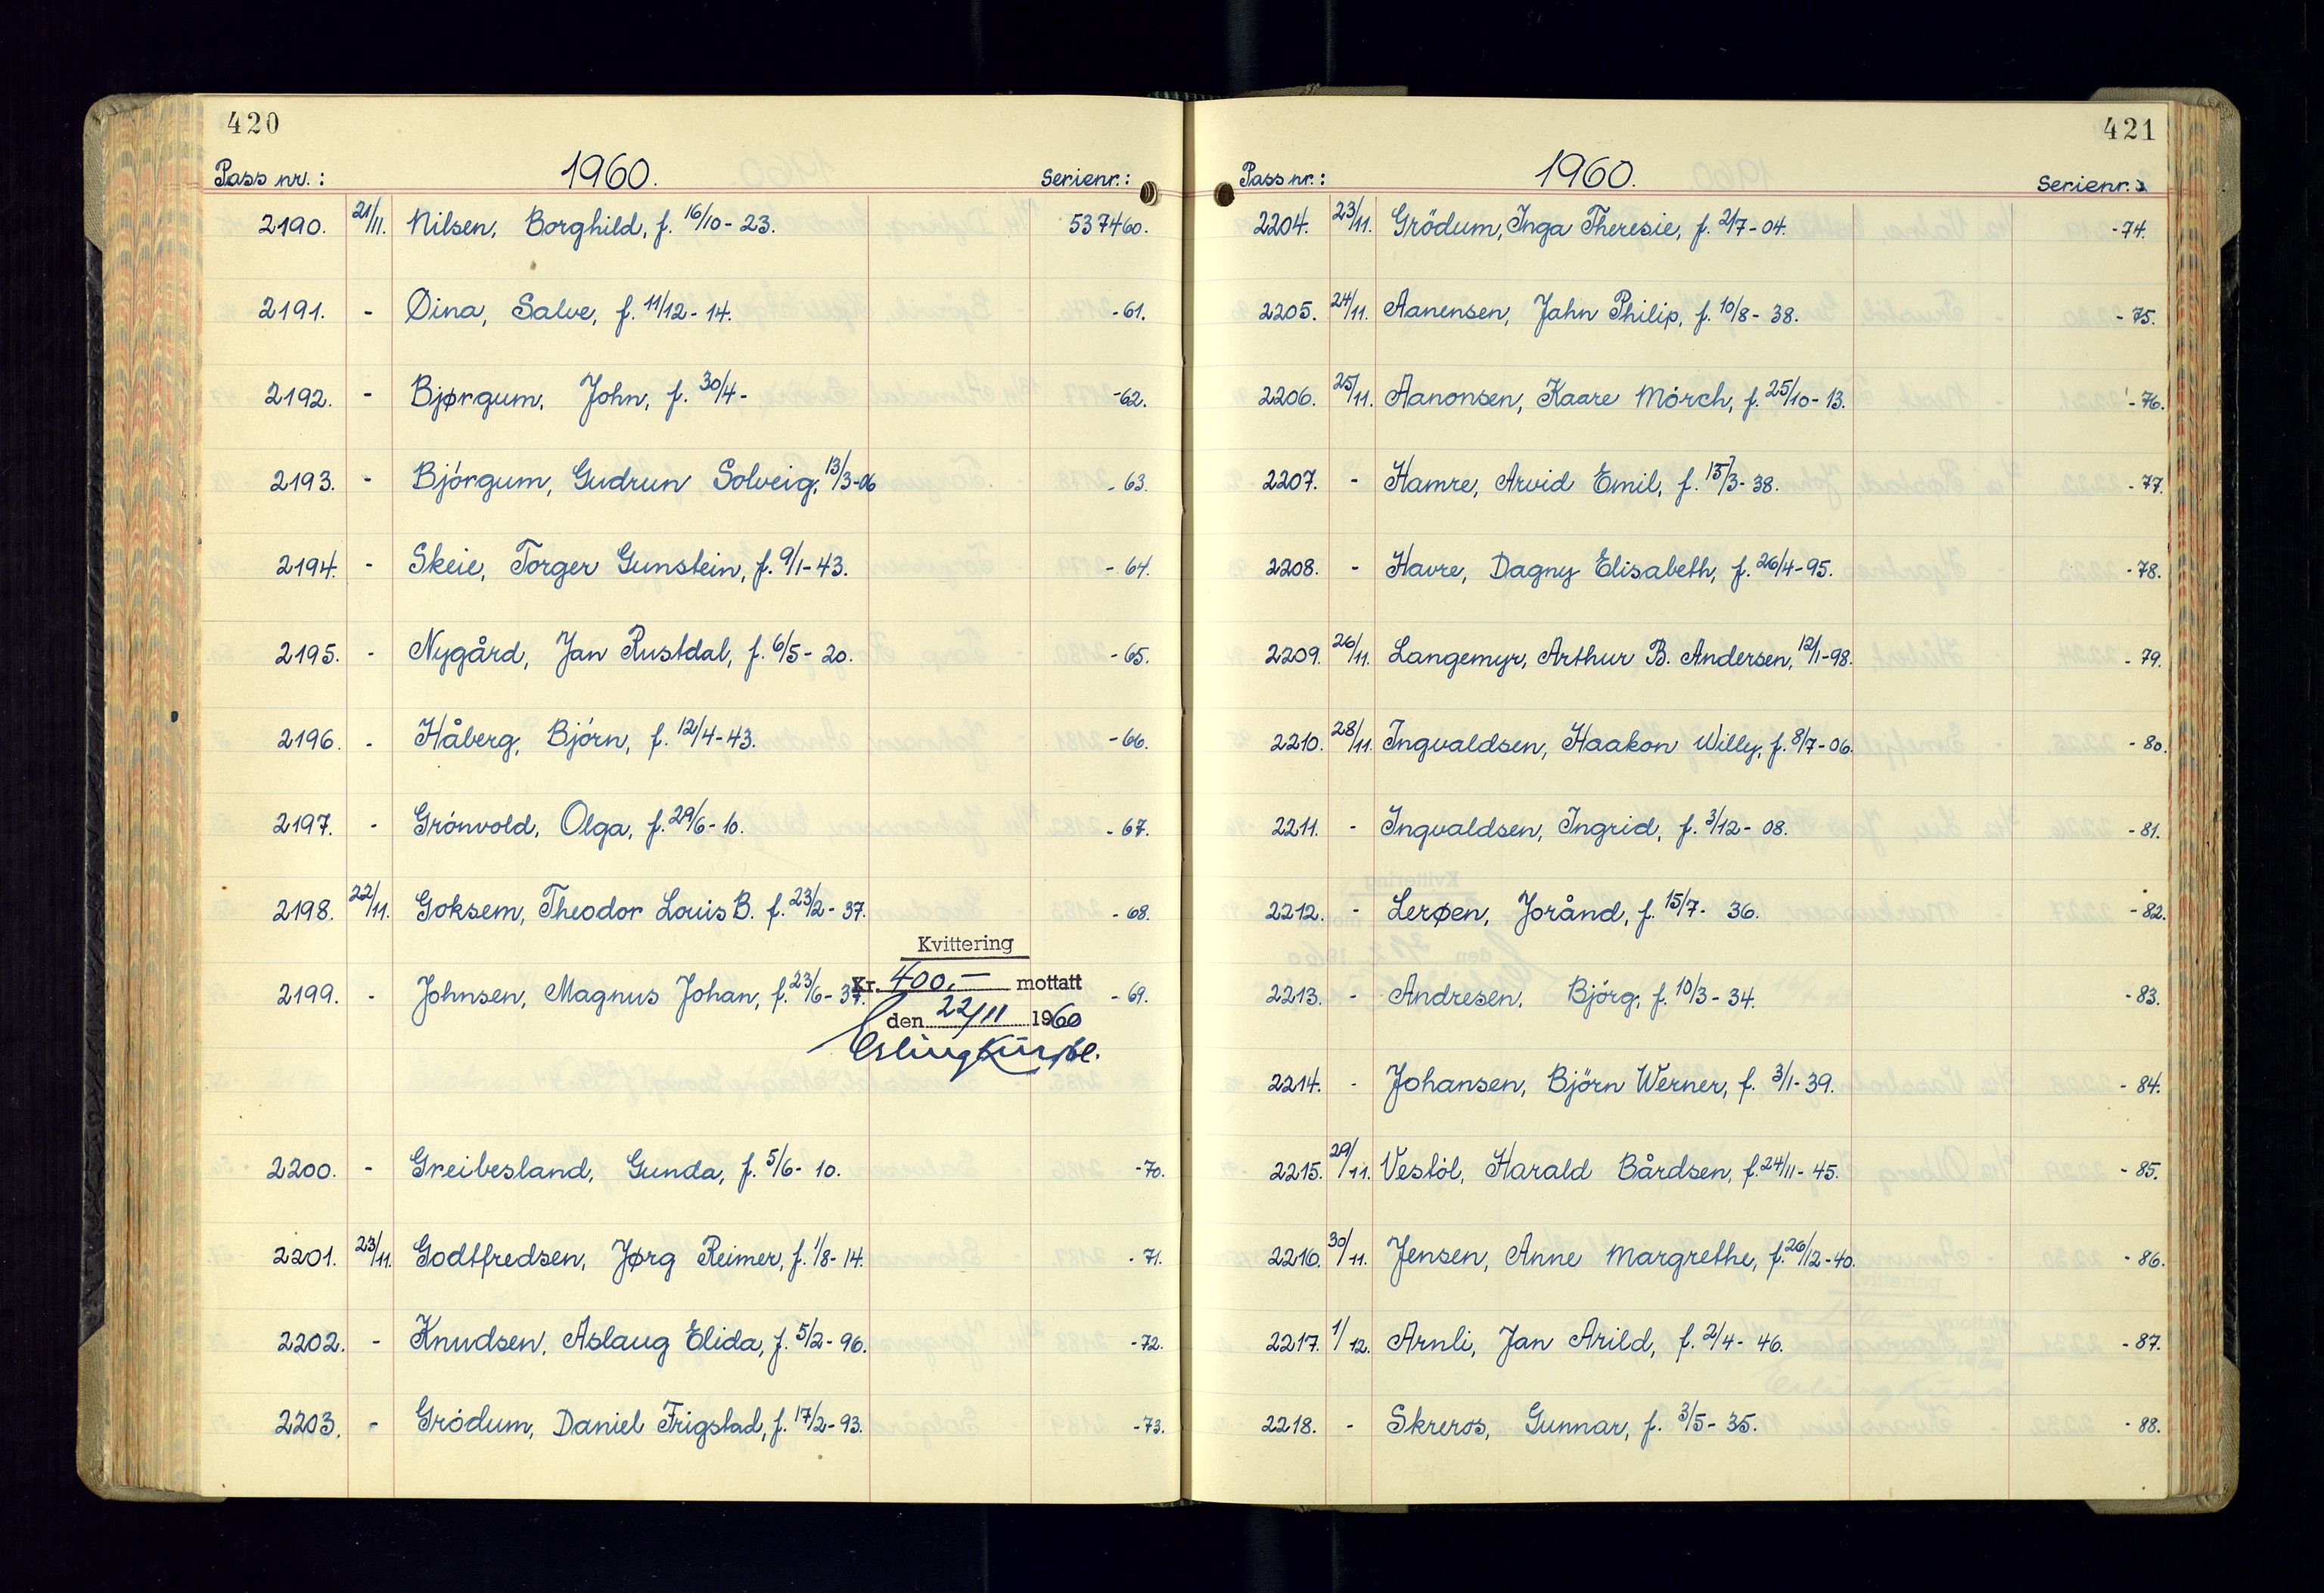 420
Pass nr.: 1960. Serienr.:
2190. 21/11. Nilsen, Borghild, f. 16/10-23. 537460.
2191. - Øina, Salve, f. 11/12-14. -61.
2192. - Bjørgum, John, f. 30/4- -62.
2193. - Bjørgum, Gudrun Solveig, 13/3-06 -63.
2194. - Skeie, Torger Gunstein, f. 9/1-43. -64.
2195. - Nygård, Jan Rustdal, f. 6/5-20. -65.
2196. - Håberg, Bjórn, f. 12/4-43. -66.
2197. - Grónvold, Olga, f. 29/6-10. -67.
2198. 22/11. Goksem, Theodor Louis B. f. 23/2-37. -68.
Kvittering
2199. - Johnsen, Magnus Johan, f. 23/6-37. Kr. 400,- mottatt -69.
den 22/11 1960
2200. - Greibesland, Gunda, f. 5/6-10. -70.
2201. 23/11. Godtfredsen, Jørg Reimer, f. 1/8-14. -71.
2202. - Knudsen, Aslaug Elida, f. 5/2-96. -72.
2203. - Gródum, Daniel Frigstad, f. 17/2-93. -73.
421
Pass nr.: 1960. Serienr.:
2204. 23/11. Grödum, Inga Theresie, f. 2/7-04. -74.
2205. 24/11. Aanensen, Jahn Philip, f. 10/8-38. -75.
2206. 25/11. Aanonsen, Kaare Mórch, f. 25/10-13. -76.
2207. - Hamre, Arvid Emil, f. 15/3-38. -77.
2208. - Havre, Dagny Elisabeth, f. 26/4-95. -78.
2209. 26/11. Langemyr, Arthur B. Andersen, 12/1-98. -79.
2210. 28/11. Ingvaldsen, Haakon Willy, f. 8/7-06. -80.
2211. - Ingvaldsen, Ingrid, f. 3/12-08. -81.
2212. - Lerøen, Jorånd, f. 15/7-36. -82.
2213. - Andresen, Bjórg, f. 10/3-34. -83.
2214. - Johansen, Björn Werner, f. 3/1-39. -84.
2215. 29/11. Vestöl, Harald Bårdsen, f. 24/11-45. -85.
2216. 30/11. Jensen, Anne Margrethe, f. 26/12-40. -86.
2217. 1/12. Arnli, Jan Arild, f. 2/4-46. -87.
2218. - Skreros, Gunnar, f. 3/5-35. -88.